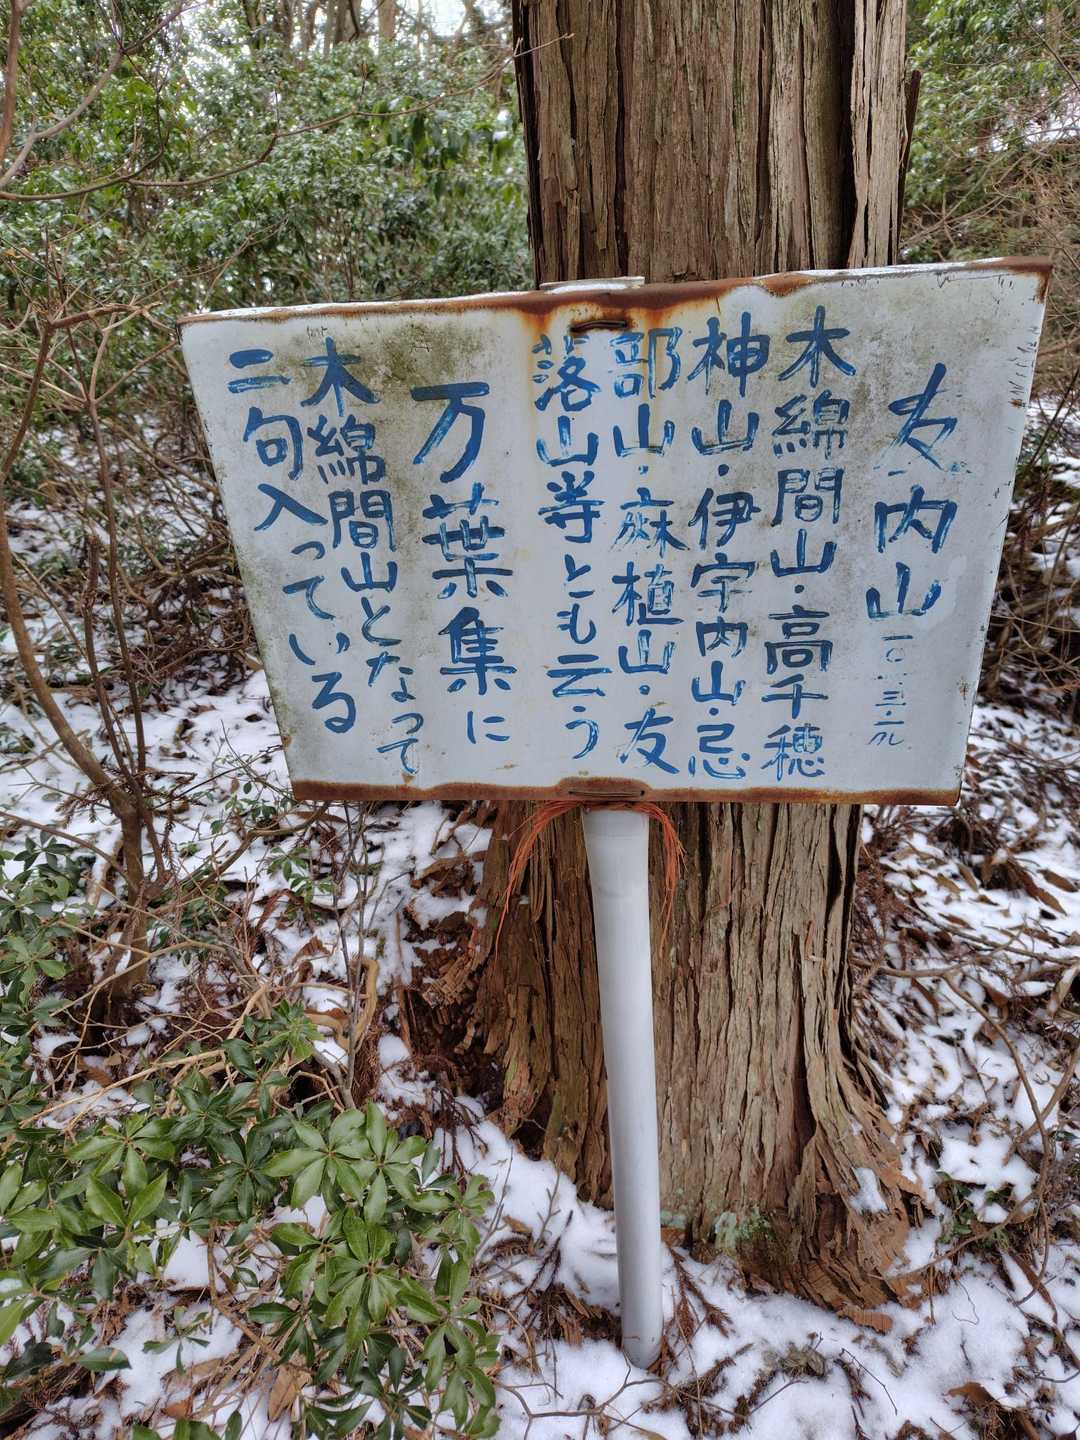 友内山
一〇・三・一九
木綿間山・高千穂
神山・伊宇内山・忌
部山・麻植山・友
落山等とも云う
万葉集に
木綿間山となって
二句入っている